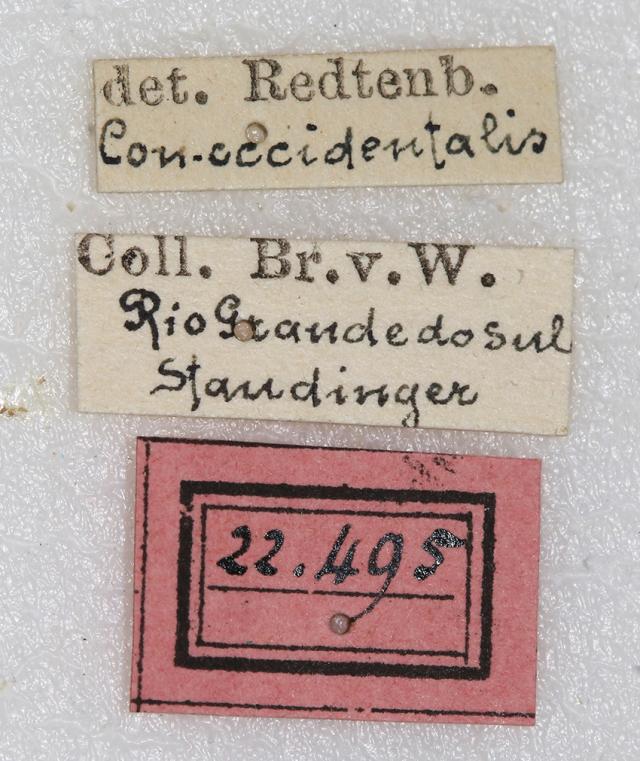 det. Redtenb.
Con. occidentalis
Coll. Br. v. W.
Rio Grande do sul
Staudinger
22.495